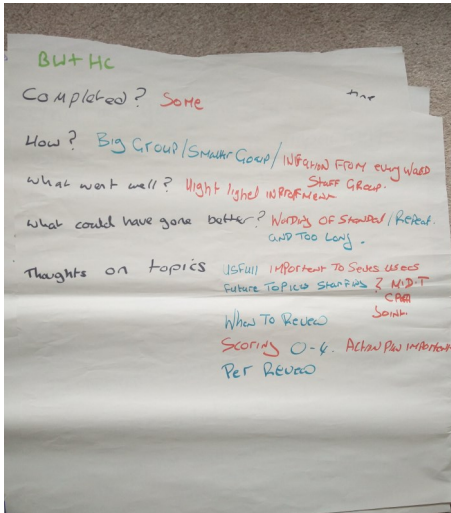 BW+HC
time
Completed? Some
How? Big Group/Smaller Goup/INFATION FROM every WARD
STAFF GROUP.
What went well? Hight lighed INPROFMENT
What could have gone better? Wording OF STANDED/Repeat.
AND TOO LONG.
Thoughts on topics USFULL IMPORTENT TO SEVES USEES
Future TOPICS STAFFING ? M.D.T
When To Review
Scoring 0-4. ACTION PLAN IMPORTENT
Per Review